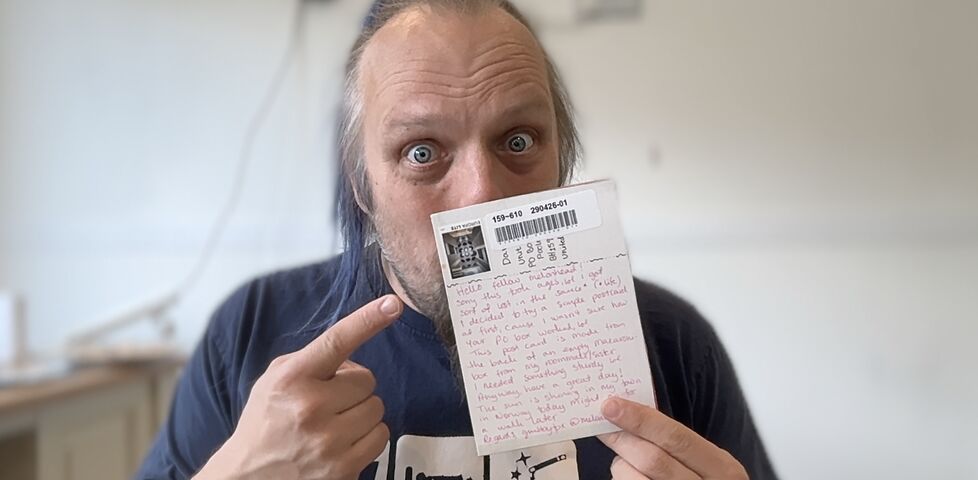 159-610 290426-01
EUROPA 20 g
Unit
PO Bo
Poole
BH159
United
Hello fellow melonhead!
Sorry this took ages, lol I got
sort of lost in the sauce* (*life)
I decided to try a simple postcard
at first, cause I wasn't sure how
your PO box worked, lol
This post card is made from
the back of an empty macaroni
box from my roommate/sister
I needed something sturdy
Anyway, have a great day!
The sun is shining in my town
in Norway today might go for
a walk later
Regards,